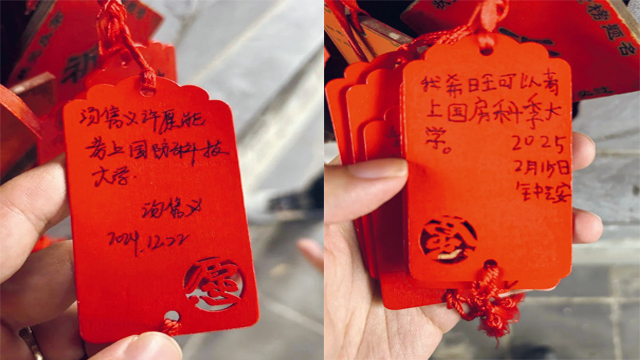 汤隽义许愿能
考上国防科技
大学.
汤隽义
2024.12.22
愿
我希望可以考
上国房科季大
学。
2025
2月15日